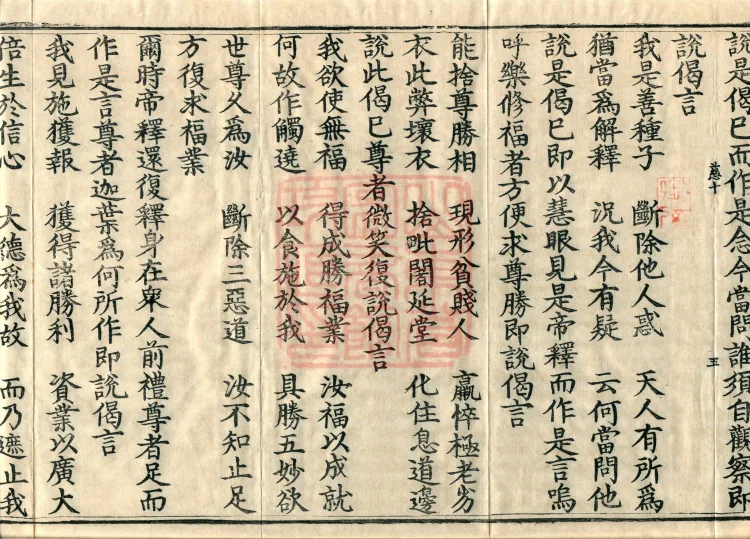 說是偈已而作是念今當問誰須自觀察即
說偈言
我是善種子 斷除他人惑 天人有所爲
猶當爲解釋 況我今有疑 云何當問他
說是偈已即以慧眼見是帝釋而作是言嗚
呼樂修福者方便求尊勝即說偈言
能捨尊勝相 現形貧賤人 羸悴極老劣
衣此弊壞衣 捨毗闍延堂 化住息道邊
說此偈已尊者微笑復說偈言
我欲使無福 得成勝福業 汝福以成就
何故作觸遶 以食施於我 具勝五妙欲
世尊久爲汝 斷除三惡道 汝不知止足
方復求福業
爾時帝釋還復釋身在衆人前禮尊者足而
作是言尊者迦葉爲何所作即說偈言
我見施獲報 獲得諸勝利 資業以廣大
倍生於信心 大德爲我故 而乃遮止我
五